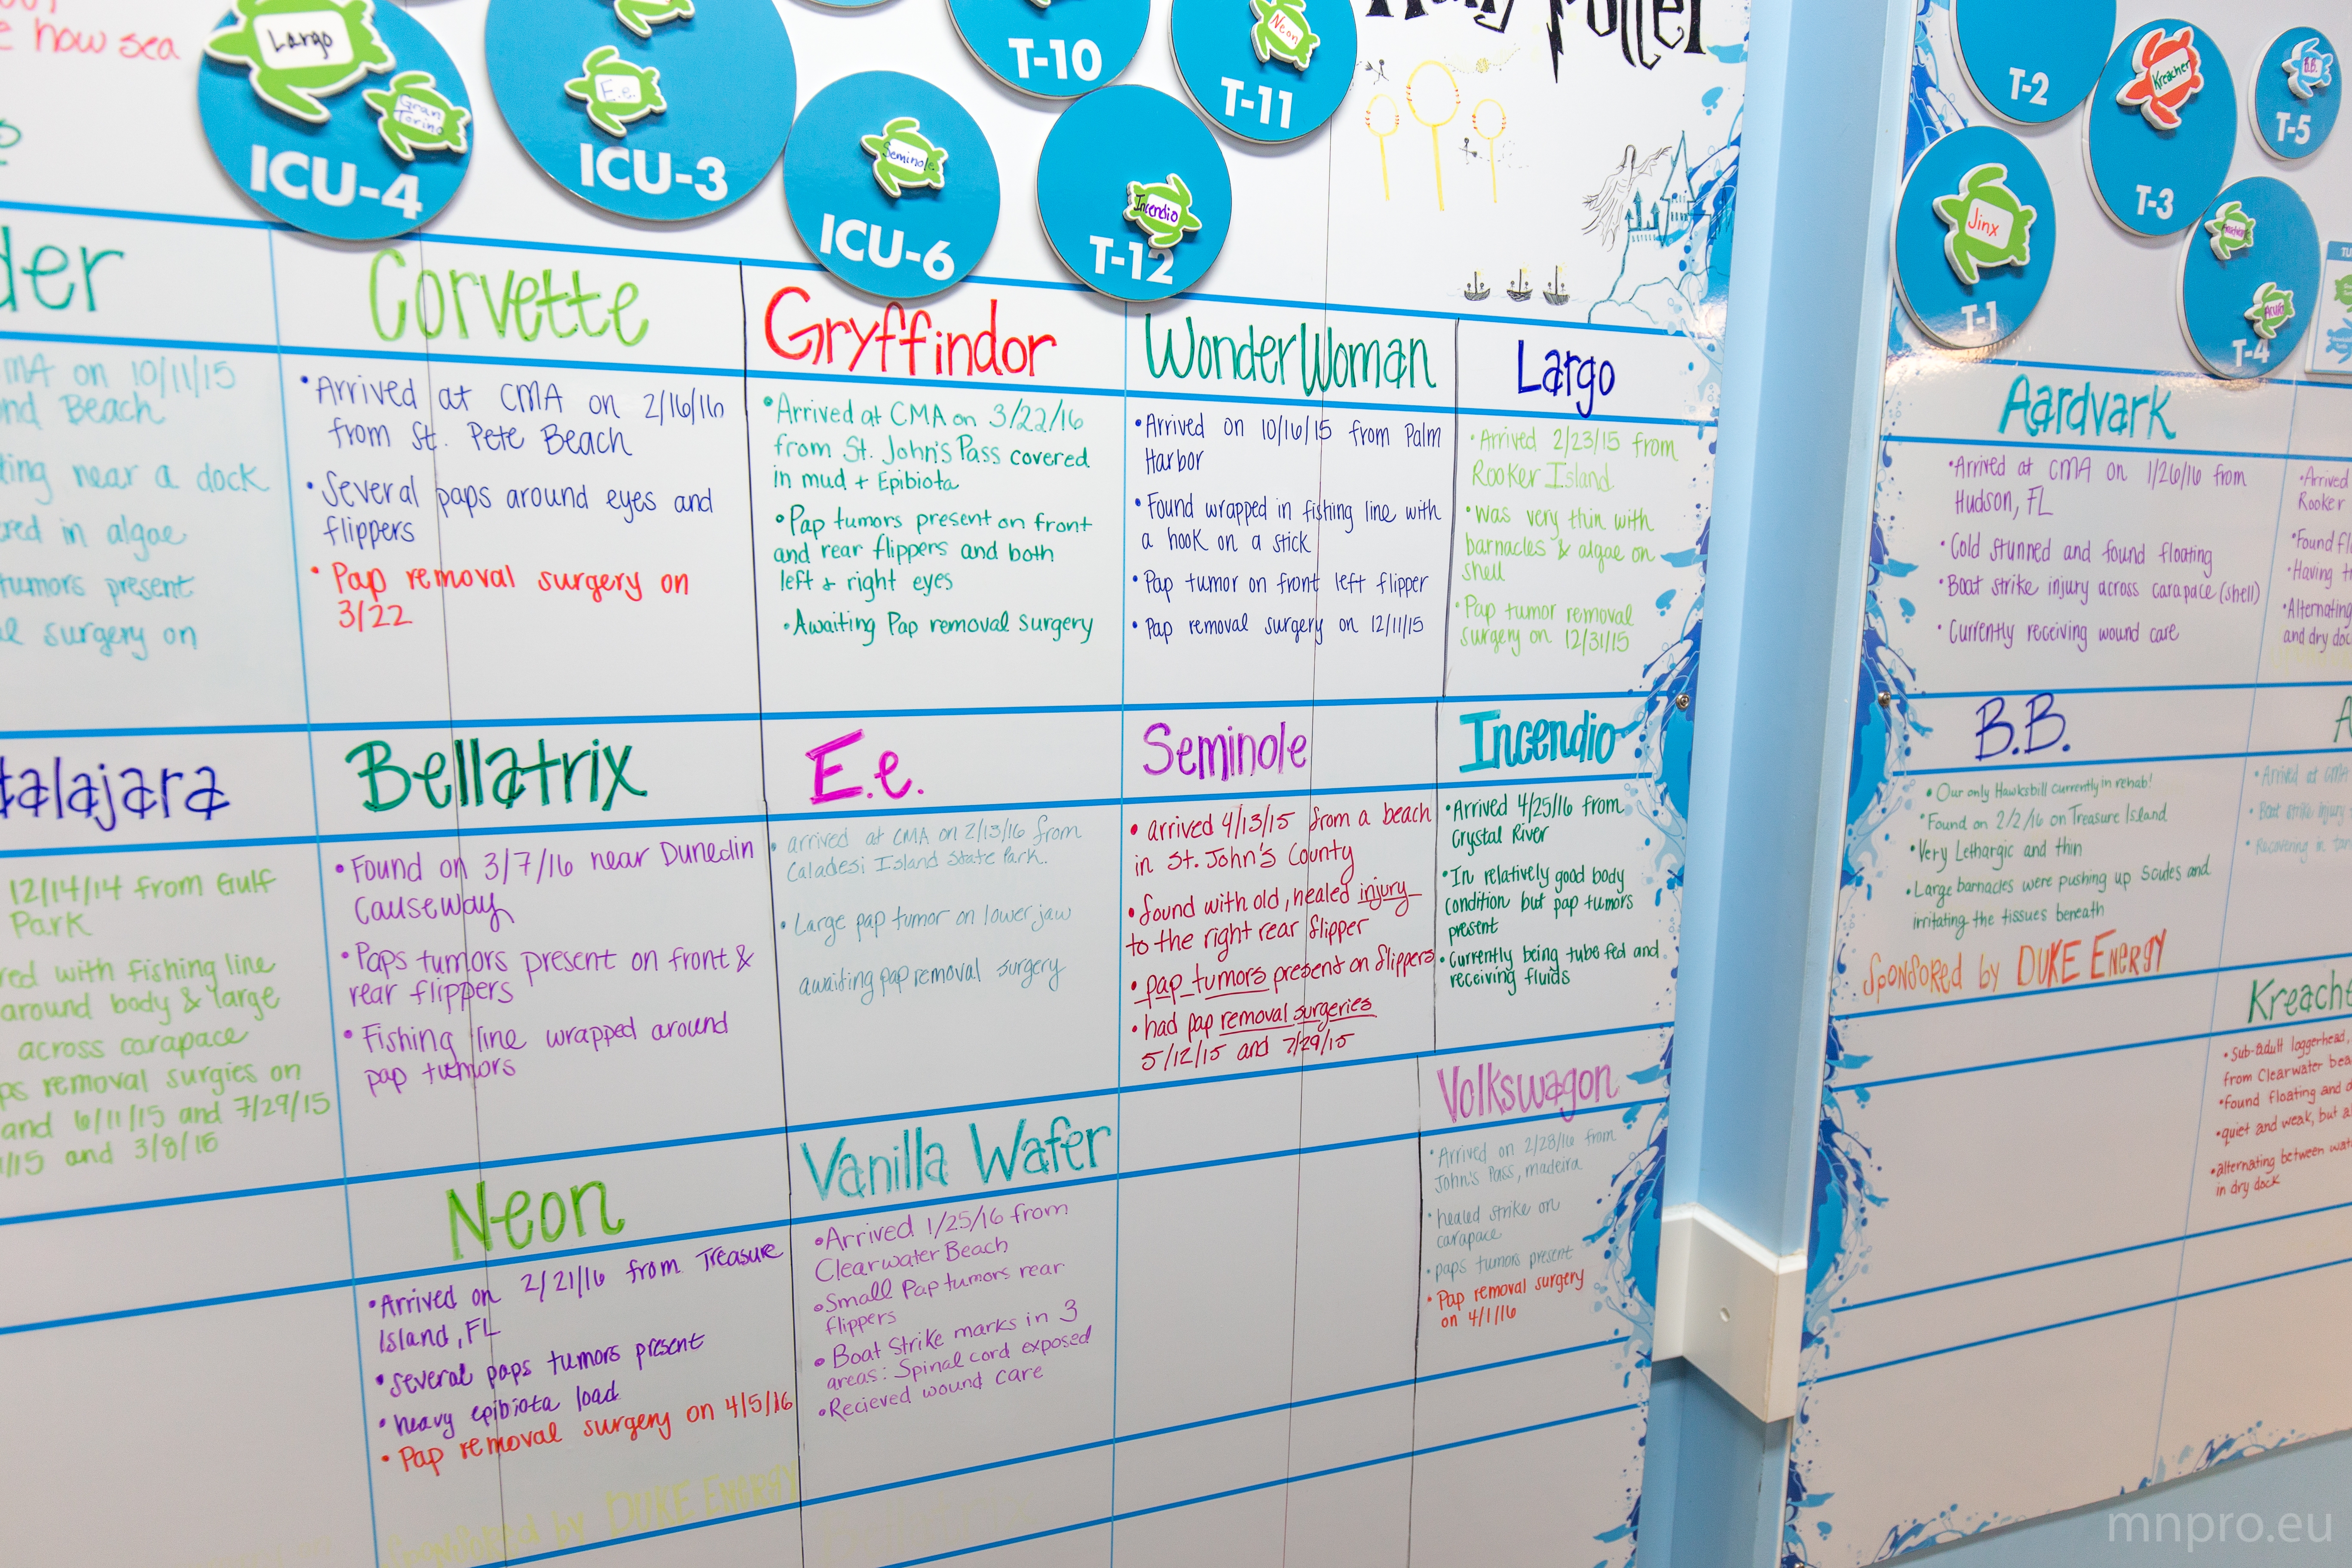 how sea
Largo
Gran
Torino
ICU-4
E.e.
ICU-3
Seminole
ICU-6
T-10
Neon
T-11
Incendio
T-12
Harry Potter
T-2
Kreacher
T-3
B.B.
T-5
Jinx
T-1
T-4
der
MA on 10/11/15
nd Beach
ting near a dock
red in algae
tumors present
surgery on
Corvette
•Arrived at CMA on 2/16/16
from St. Pete Beach
•Several paps around eyes and
flippers
•Pap removal surgery on
3/22
Gryffindor
•Arrived at CMA on 3/22/16
from St. John's Pass covered
in mud + Epibiota
•Pap tumors present on front
and rear flippers and both
left & right eyes
•Awaiting Pap removal surgery
Wonder Woman
•Arrived on 10/16/15 from Palm
Harbor
•Found wrapped in fishing line with
a hook on a stick
•Pap tumor on front left flipper
•Pap removal surgery on 12/11/15
Largo
•Arrived 2/23/15 from
Rooker Island
•was very thin with
barnacles & algae on
shell
•Pap tumor removal
surgery on 12/31/15
Aardvark
•Arrived at CMA on 1/26/16 from
Hudson, FL
•Cold stunned and found floating
•Boat strike injury across carapace (shell)
•Currently receiving wound care
•Arrived
Rooker
•Found fl
•Having t
•Alternating
and dry doc
talajara
12/14/14 from Gulf
Park
red with fishing line
around body & large
across carapace
ps removal surgies on
and 6/11/15 and 7/29/15
1/15 and 3/8/16
Bellatrix
•Found on 3/7/16 near Dunedin
Causeway
•Paps tumors present on front &
rear flippers
•Fishing line wrapped around
pap tumors
E.e.
•arrived at CMA on 2/13/16 from
Caladesi Island State Park.
•Large pap tumor on lower jaw
awaiting pap removal surgery
Seminole
•arrived 4/13/15 from a beach
in St. John's County
•found with old, healed injury
to the right rear flipper
•pap tumors present on flippers
•had pap removal surgeries
5/12/15 and 7/29/15
Incendio
•Arrived 4/25/16 from
Crystal River
•In relatively good body
condition but pap tumors
present
•Currently being tube fed and
receiving fluids
B.B.
•Our only Hawksbill currently in rehab!
•Found on 2/2/16 on Treasure Island
•Very Lethargic and thin
•Large barnacles were pushing up scudes and
irritating the tissues beneath
Sponsored by DUKE ENERGY
A
•Arrived at CMA
•Boat strike injury
•Recovering in
Neon
•Arrived on 2/21/16 from Treasure
Island, FL
•several paps tumors present
•heavy epibiota load
•Pap removal surgery on 4/5/16
Sponsored by DUKE ENERGY
Vanilla Wafer
•Arrived 1/25/16 from
Clearwater Beach
•Small Pap tumors rear
flippers
•Boat Strike marks in 3
areas: Spinal cord exposed
•Recieved wound care
Volkswagon
•Arrived on 2/28/16 from
John's Pass, madeira
•healed strike on
carapace
•paps tumors present
•Pap removal surgery
on 4/1/16
Kreache
•Sub-adult loggerhead,
from Clearwater bea
•found floating and d
•quiet and weak, but al
•alternating between wat
in dry dock
mnpro.eu